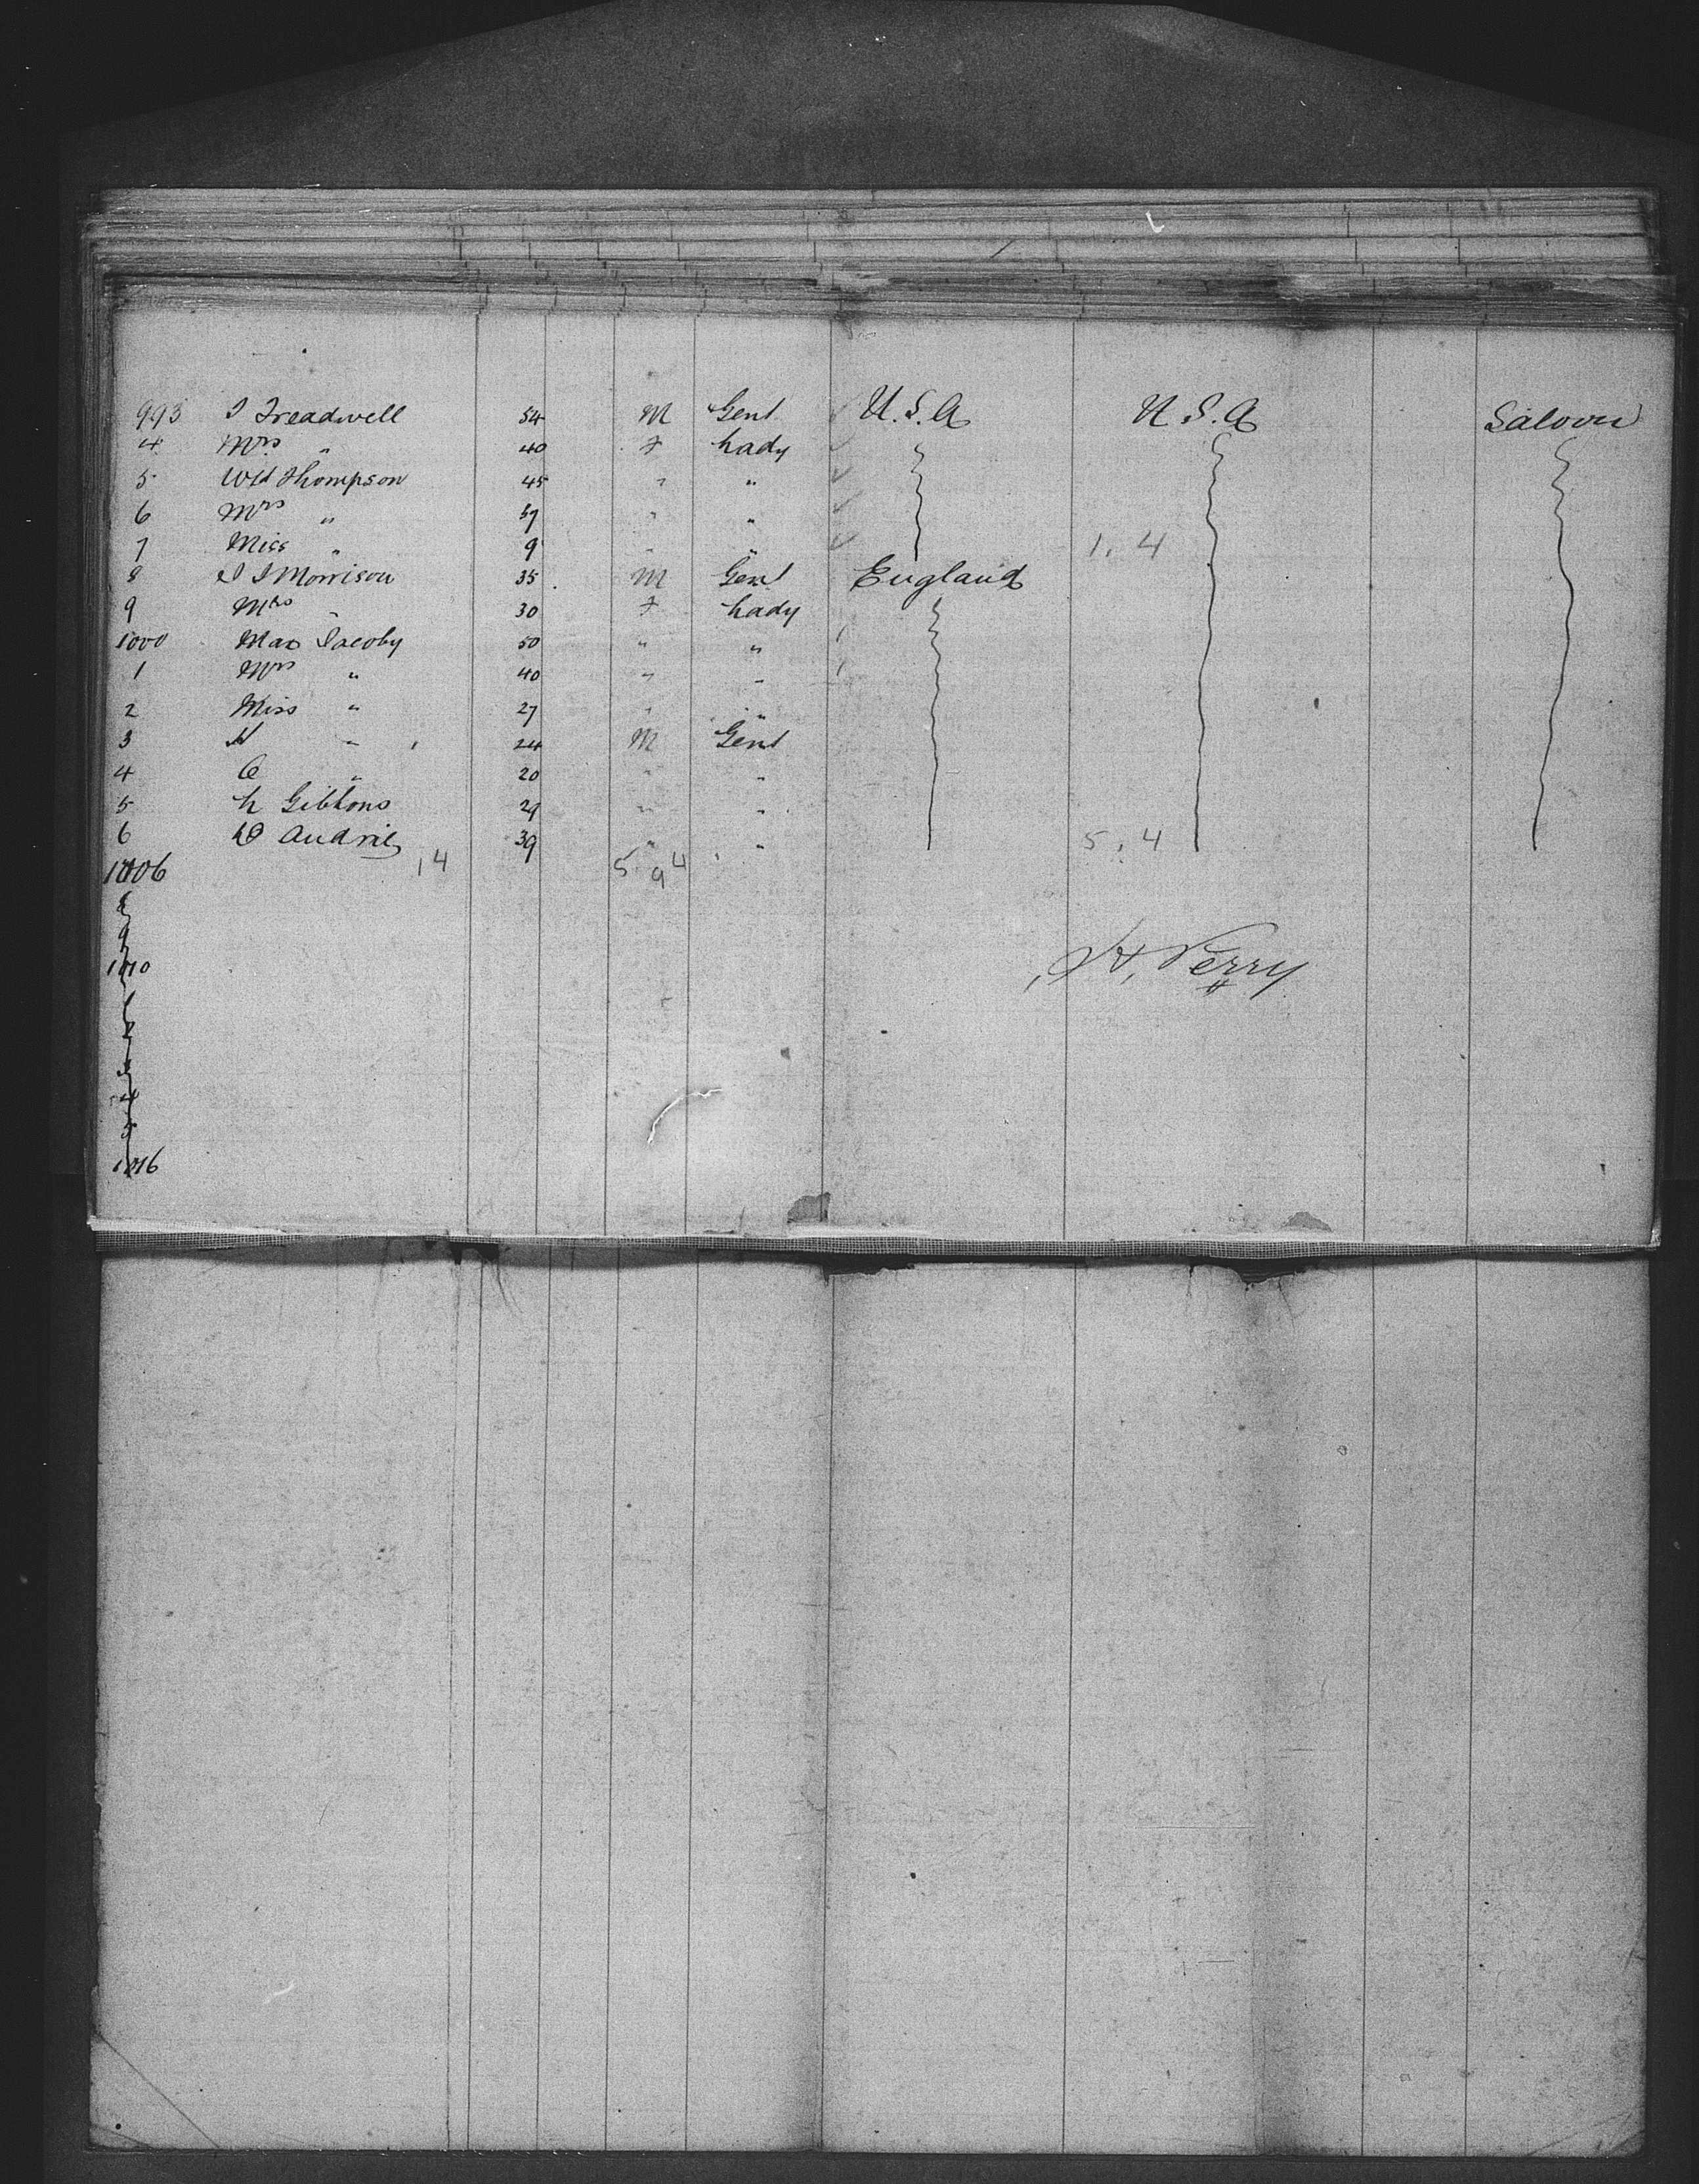 993 I Treadwell 54 M Gent U.S.A U.S.A Saloon
4 Mrs " 40 F Lady
5 Wm Thompson 45 " "
6 Mrs " 37 " "
7 Miss " 9 " " 1, 4
8 J Morrison 35 M Gent England
9 Mrs " 30 F Lady
1000 Max Jacoby 50 " "
1 Mrs " 40 " "
2 Miss " 27 " "
3 H " 24 M Gent
4 C " 20 " "
5 L Gibbons 29 " "
6 Audrie 39 " " 5, 4
1006 14 5 9 4
8
9
1010 H. Perry
1016